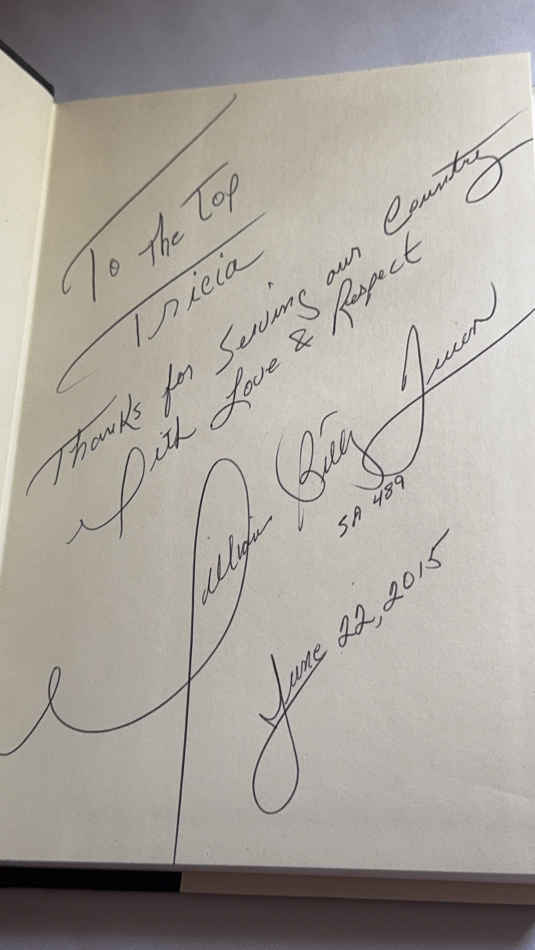 To The Top
Tricia
Thanks for Serving our Country
With Love & Respect
William "Billy"
SA 489
June 22, 2015